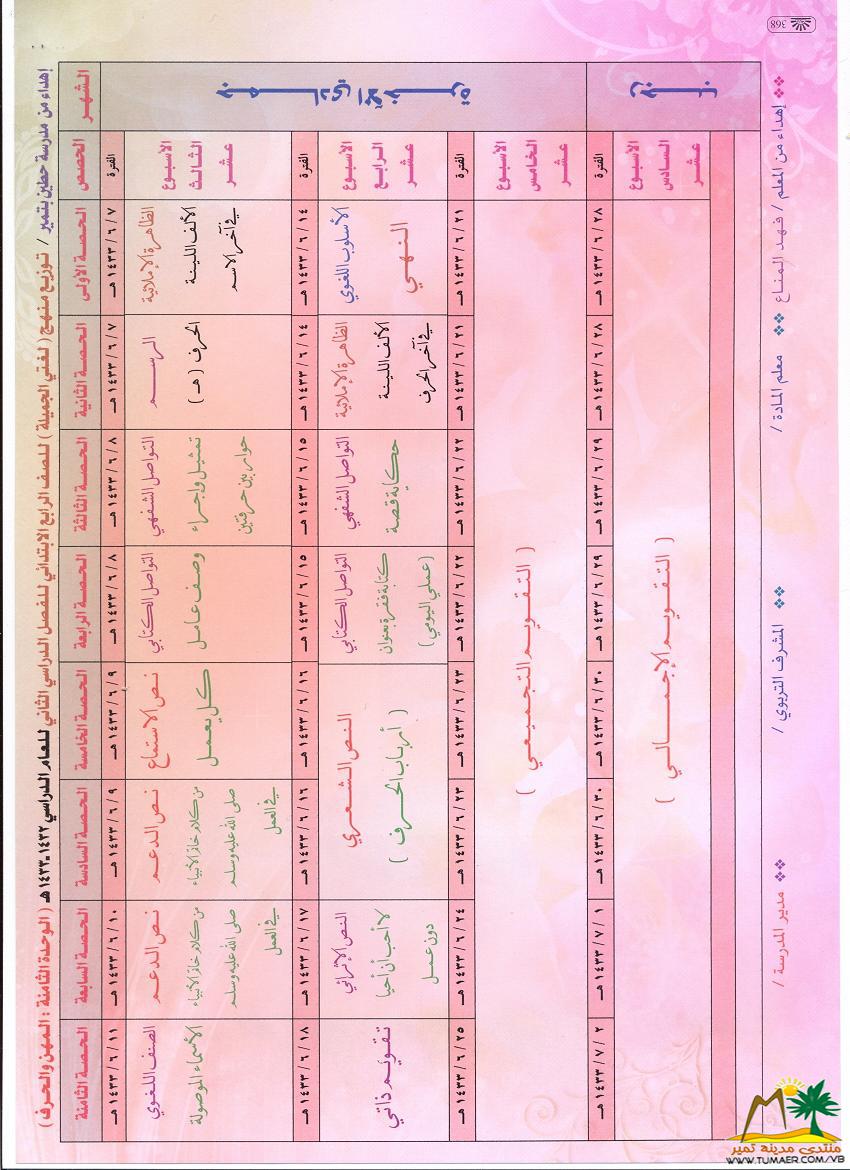 إهداء من مدرسة حطين بتمير / توزيع منهج ( لغتي الجميلة ) للصف الرابع الابتدائي للفصل الدراسي الثاني للعام الدراسي ١٤٣٢-١٤٣٣ هـ ( الوحدة الثامنة : المهن والحرف )
الشهر
جمادى الآخرة
رجب
الحصص
الحصة الأولى
الحصة الثانية
الحصة الثالثة
الحصة الرابعة
الحصة الخامسة
الحصة السادسة
الحصة السابعة
الحصة الثامنة
الفترة
٧ / ٦ / ١٤٣٣ هـ
٧ / ٦ / ١٤٣٣ هـ
٨ / ٦ / ١٤٣٣ هـ
٨ / ٦ / ١٤٣٣ هـ
٩ / ٦ / ١٤٣٣ هـ
٩ / ٦ / ١٤٣٣ هـ
١٠ / ٦ / ١٤٣٣ هـ
١١ / ٦ / ١٤٣٣ هـ
الأسبوع
الثالث
عشر
الظاهرة الإملائية
الألف اللينة
في آخر الاسم
الرسم
الحرف ( هـ )
التواصل الشفهي
تمثيل وإجراء
حوار بين حرفتين
التواصل الكتابي
وصف عامل
نص الاستماع
كل يعمل
نص الدعم
من كلام خاتم الأنبياء
صلى الله عليه وسلم
في العمل
نص الدعم
من كلام خاتم الأنبياء
صلى الله عليه وسلم
في العمل
الصنف اللغوي
الأسماء الموصولة
الفترة
١٤ / ٦ / ١٤٣٣ هـ
١٤ / ٦ / ١٤٣٣ هـ
١٥ / ٦ / ١٤٣٣ هـ
١٥ / ٦ / ١٤٣٣ هـ
١٦ / ٦ / ١٤٣٣ هـ
١٦ / ٦ / ١٤٣٣ هـ
١٧ / ٦ / ١٤٣٣ هـ
١٨ / ٦ / ١٤٣٣ هـ
الأسبوع
الرابع
عشر
الأسلوب اللغوي
النهي
الظاهرة الإملائية
الألف اللينة
في آخر الحرف
التواصل الشفهي
حكاية قصة
التواصل الكتابي
كتابة فقرة بعنوان
( عملي اليومي )
النص الشعري
( أرباب الحرف )
النص الإثرائي
لا أحب أن أحيا
دون عمل
تقويم ذاتي
الفترة
٢١ / ٦ / ١٤٣٣ هـ
٢١ / ٦ / ١٤٣٣ هـ
٢٢ / ٦ / ١٤٣٣ هـ
٢٢ / ٦ / ١٤٣٣ هـ
٢٣ / ٦ / ١٤٣٣ هـ
٢٣ / ٦ / ١٤٣٣ هـ
٢٤ / ٦ / ١٤٣٣ هـ
٢٥ / ٦ / ١٤٣٣ هـ
الأسبوع
الخامس
عشر
( التقويم التجميعي )
الفترة
٢٨ / ٦ / ١٤٣٣ هـ
٢٨ / ٦ / ١٤٣٣ هـ
٢٩ / ٦ / ١٤٣٣ هـ
٢٩ / ٦ / ١٤٣٣ هـ
٣٠ / ٦ / ١٤٣٣ هـ
٣٠ / ٦ / ١٤٣٣ هـ
١ / ٧ / ١٤٣٣ هـ
٢ / ٧ / ١٤٣٣ هـ
الأسبوع
السادس
عشر
( التقويم الإجمالي )
إهداء من المعلم / فهد المناع
معلم المادة /
المشرف التربوي /
مدير المدرسة /
368
منتدى مدينة تمير
WWW.TUMAER.COM/VB